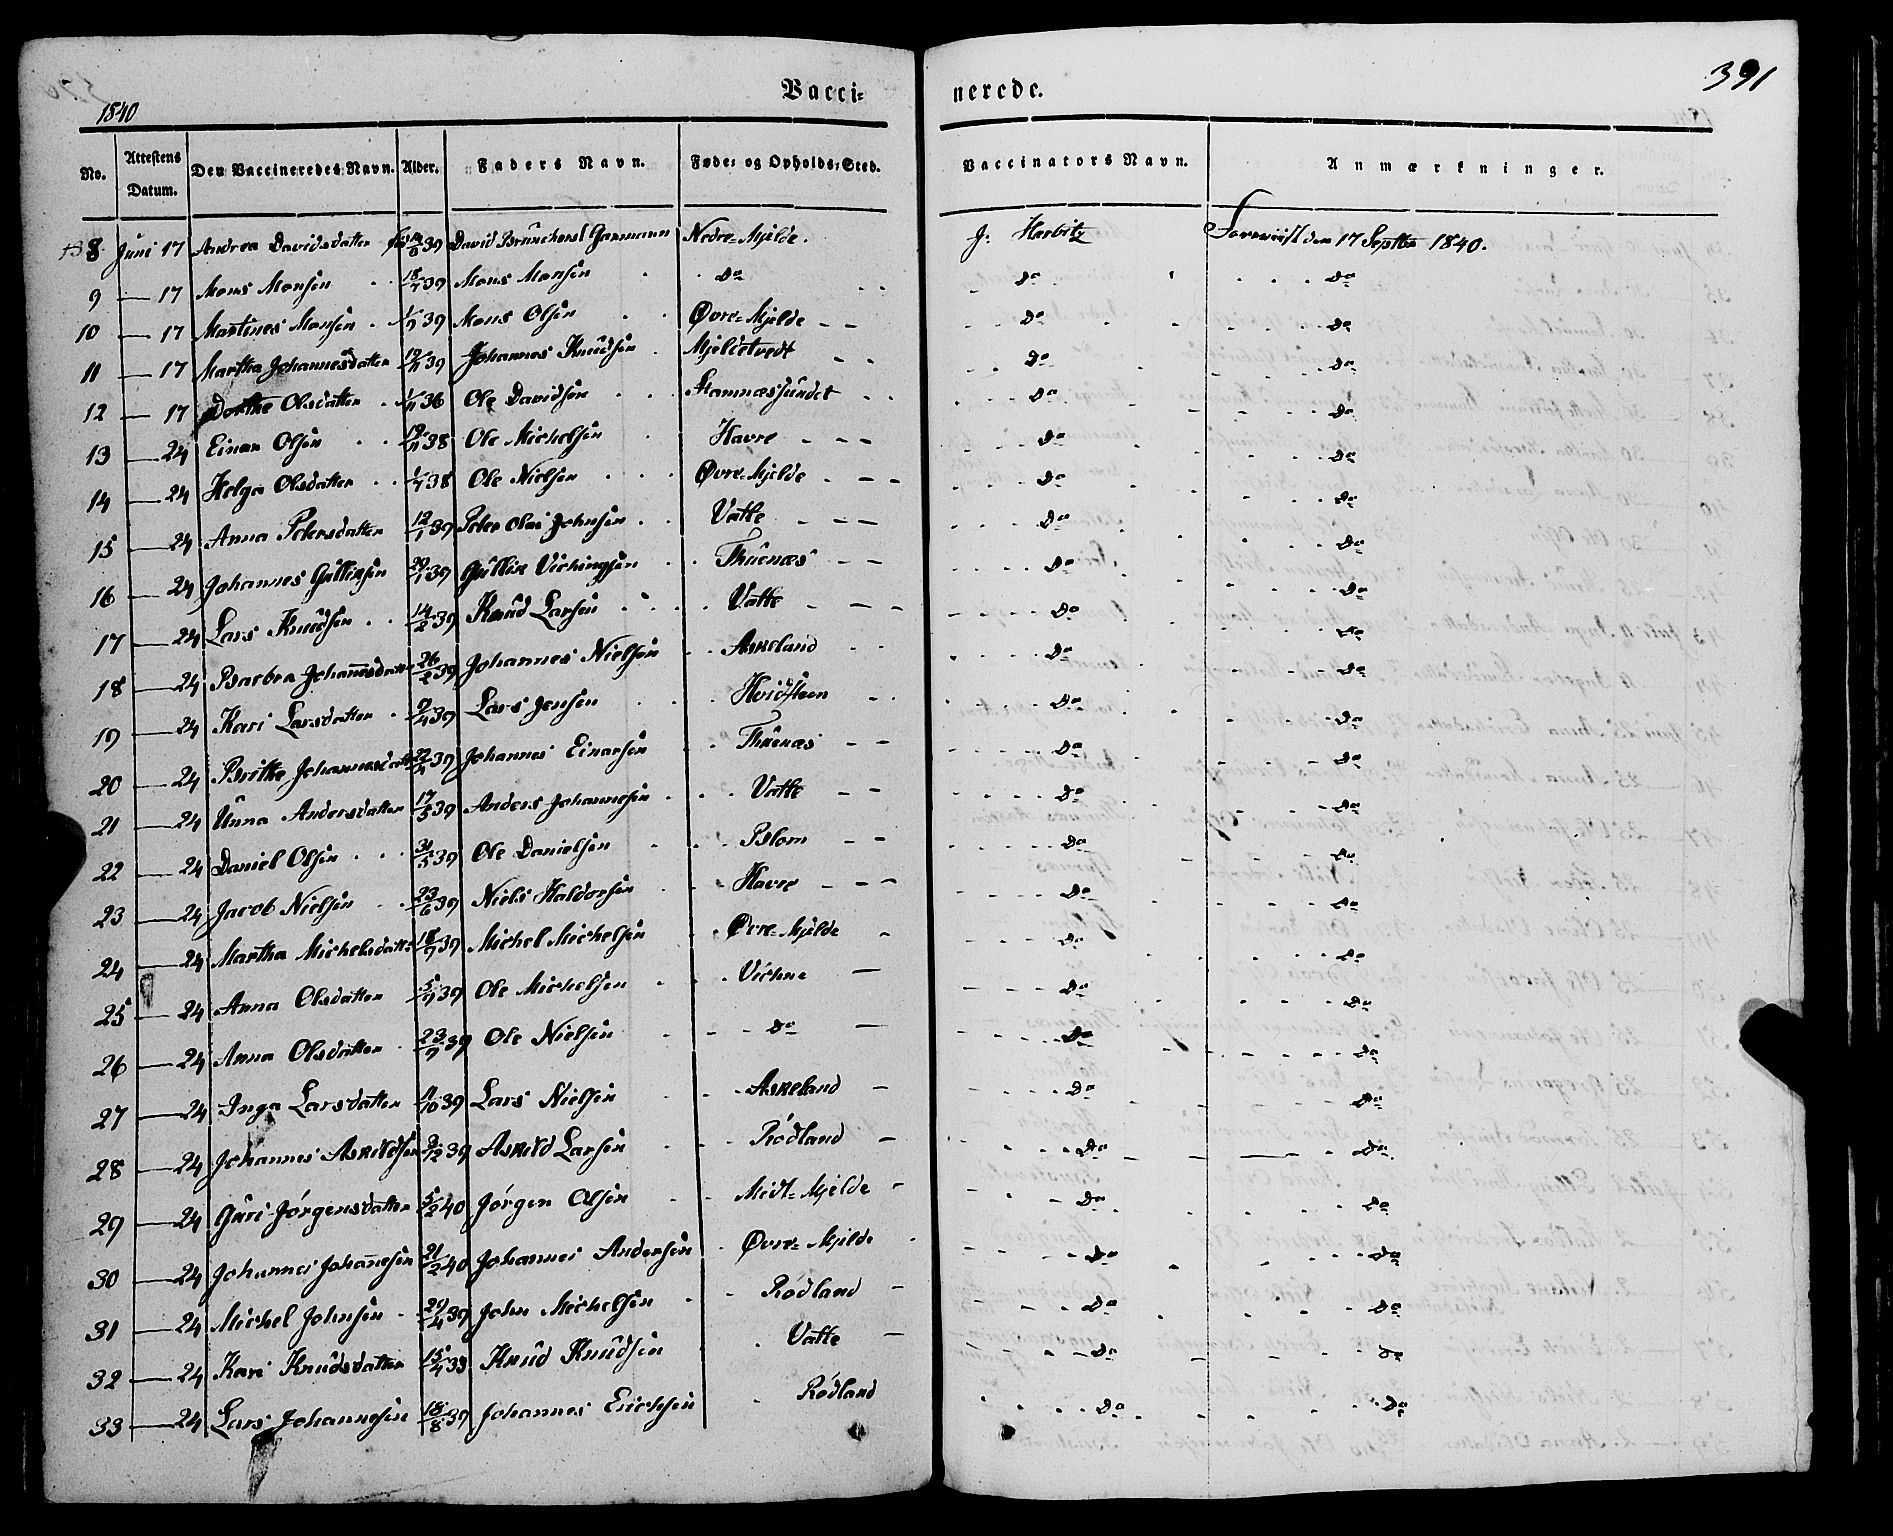 1840
Vacci- nerede.
391
No. Attestens Datum. Den Vaccineredes Navn. Alder. Faders Navn. Føde- og Opholds-Sted. Vaccinators Navn. Anmærkninger.
8 Juni 17 Andrea Davidsdatter 39 David Brunchorst Garmann Nedre-Mjelde. J: Herbitz Foreviist den 17 Septbr 1840.
9 — 17 Mons Monsen 18/7 39 Mons Monsen Do Do Do
10 — 17 Martines Monsen 1/9 39 Mons Olsen Øvre-Mjelde Do Do
11 — 17 Martha Johannesdatter 12/11 39 Johannes Knudsen Mjeldetvedt Do Do
12 — 17 Dorthe Olsdatter 1/11 36 Ole Davidsen Stamnæssundet Do Do
13 — 24 Einar Olsen 19/11 38 Ole Michelsen Havre Do Do
14 — 24 Helga Olsdatter 1/7 38 Ole Nielsen Øvre-Mjelde Do Do
15 — 24 Anna Petersdatter 12/1 39 Peter Olai Johnsen Vatle Do Do
16 — 24 Johannes Gullixsen 29/1 39 Gullik Vichingsen Thuenæs Do Do
17 — 24 Lars Knudsen 14/2 39 Knud Larsen Vatle Do Do
18 — 24 Barbra Johannesdatter 26/2 39 Johannes Nielsen Askeland Do Do
19 — 24 Kari Larsdatter 9/4 39 Lars Jensen Hvidsteen Do Do
20 — 24 Brithe Johannesdatter 22/4 39 Johannes Einarsen Thuenæs Do Do
21 — 24 Unna Andersdatter 17/5 39 Anders Johannesen Vatle Do Do
22 — 24 Daniel Olsen 31/5 39 Ole Danielsen Blom Do Do
23 — 24 Jacob Nielsen 23/6 39 Niels Haldorsen Havre Do Do
24 — 24 Martha Michelsdatter 18/9 39 Michel Michelsen Øvre-Mjelde Do Do
25 — 24 Anna Olsdatter 5/9 39 Ole Michelsen Vichne Do Do
26 — 24 Anna Olsdatter 23/9 39 Ole Nielsen Do Do Do
27 — 24 Inga Larsdatter 11/10 39 Lars Nielsen Askeland Do Do
28 — 24 Johannes Askildsen 9/12 39 Askild Larsen Rødland Do Do
29 — 24 Guri Jørgensdatter 5/2 40 Jørgen Olsen Midt-Mjelde Do Do
30 — 24 Johannes Johannesen 21/2 40 Johannes Andersen Øvre-Mjelde Do Do
31 — 24 Michel Johnsen 29/4 39 John Michelsen Rødland Do Do
32 — 24 Kari Knudsdatter 15/4 39 Knud Knudsen Vatle Do Do
33 — 24 Lars Johannesen 18/8 39 Johannes Erichsen Rødland Do Do